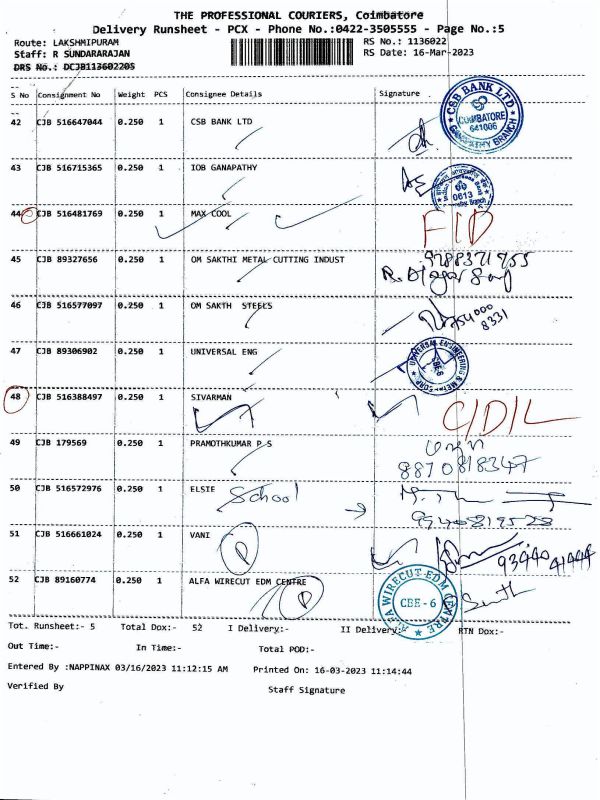 THE PROFESSIONAL COURIERS, Coimbatore
Delivery Runsheet - PCX - Phone No.:0422-3505555 - Page No.:5
Route: LAKSHMIPURAM RS No.: 1136022
Staff: R SUNDARARAJAN RS Date: 16-Mar-2023
DRS No.: DCJB113602205
S No Consignment No Weight PCS Consignee Details Signature
42 CJB 516647044 0.250 1 CSB BANK LTD
CSB BANK LTD COIMBATORE 641006 GANAPATHY BRANCH
43 CJB 516715365 0.250 1 IOB GANAPATHY
0613
44 CJB 516481769 0.250 1 MAX COOL
45 CJB 89327656 0.250 1 OM SAKTHI METAL CUTTING INDUST
9788371955
46 CJB 516577097 0.250 1 OM SAKTH STEELS
8331
47 CJB 89306902 0.250 1 UNIVERSAL ENG
UNIVERSAL ENGINEERING & METAL CORP. CBE-6
48 CJB 516388497 0.250 1 SIVARMAN
C/D/L
49 CJB 179569 0.250 1 PRAMOTHKUMAR P S
8870818347
50 CJB 516572976 0.250 1 ELSIE School
9540819528
51 CJB 516661024 0.250 1 VANI
P
93440 41444
52 CJB 89160774 0.250 1 ALFA WIRECUT EDM CENTRE
P
ALFA WIRECUT EDM CENTRE CBE - 6
Tot. Runsheet:- 5 Total Dox:- 52 I Delivery:- II Delivery:- RTN Dox:-
Out Time:- In Time:- Total POD:-
Entered By :NAPPINAX 03/16/2023 11:12:15 AM Printed On: 16-03-2023 11:14:44
Verified By Staff Signature